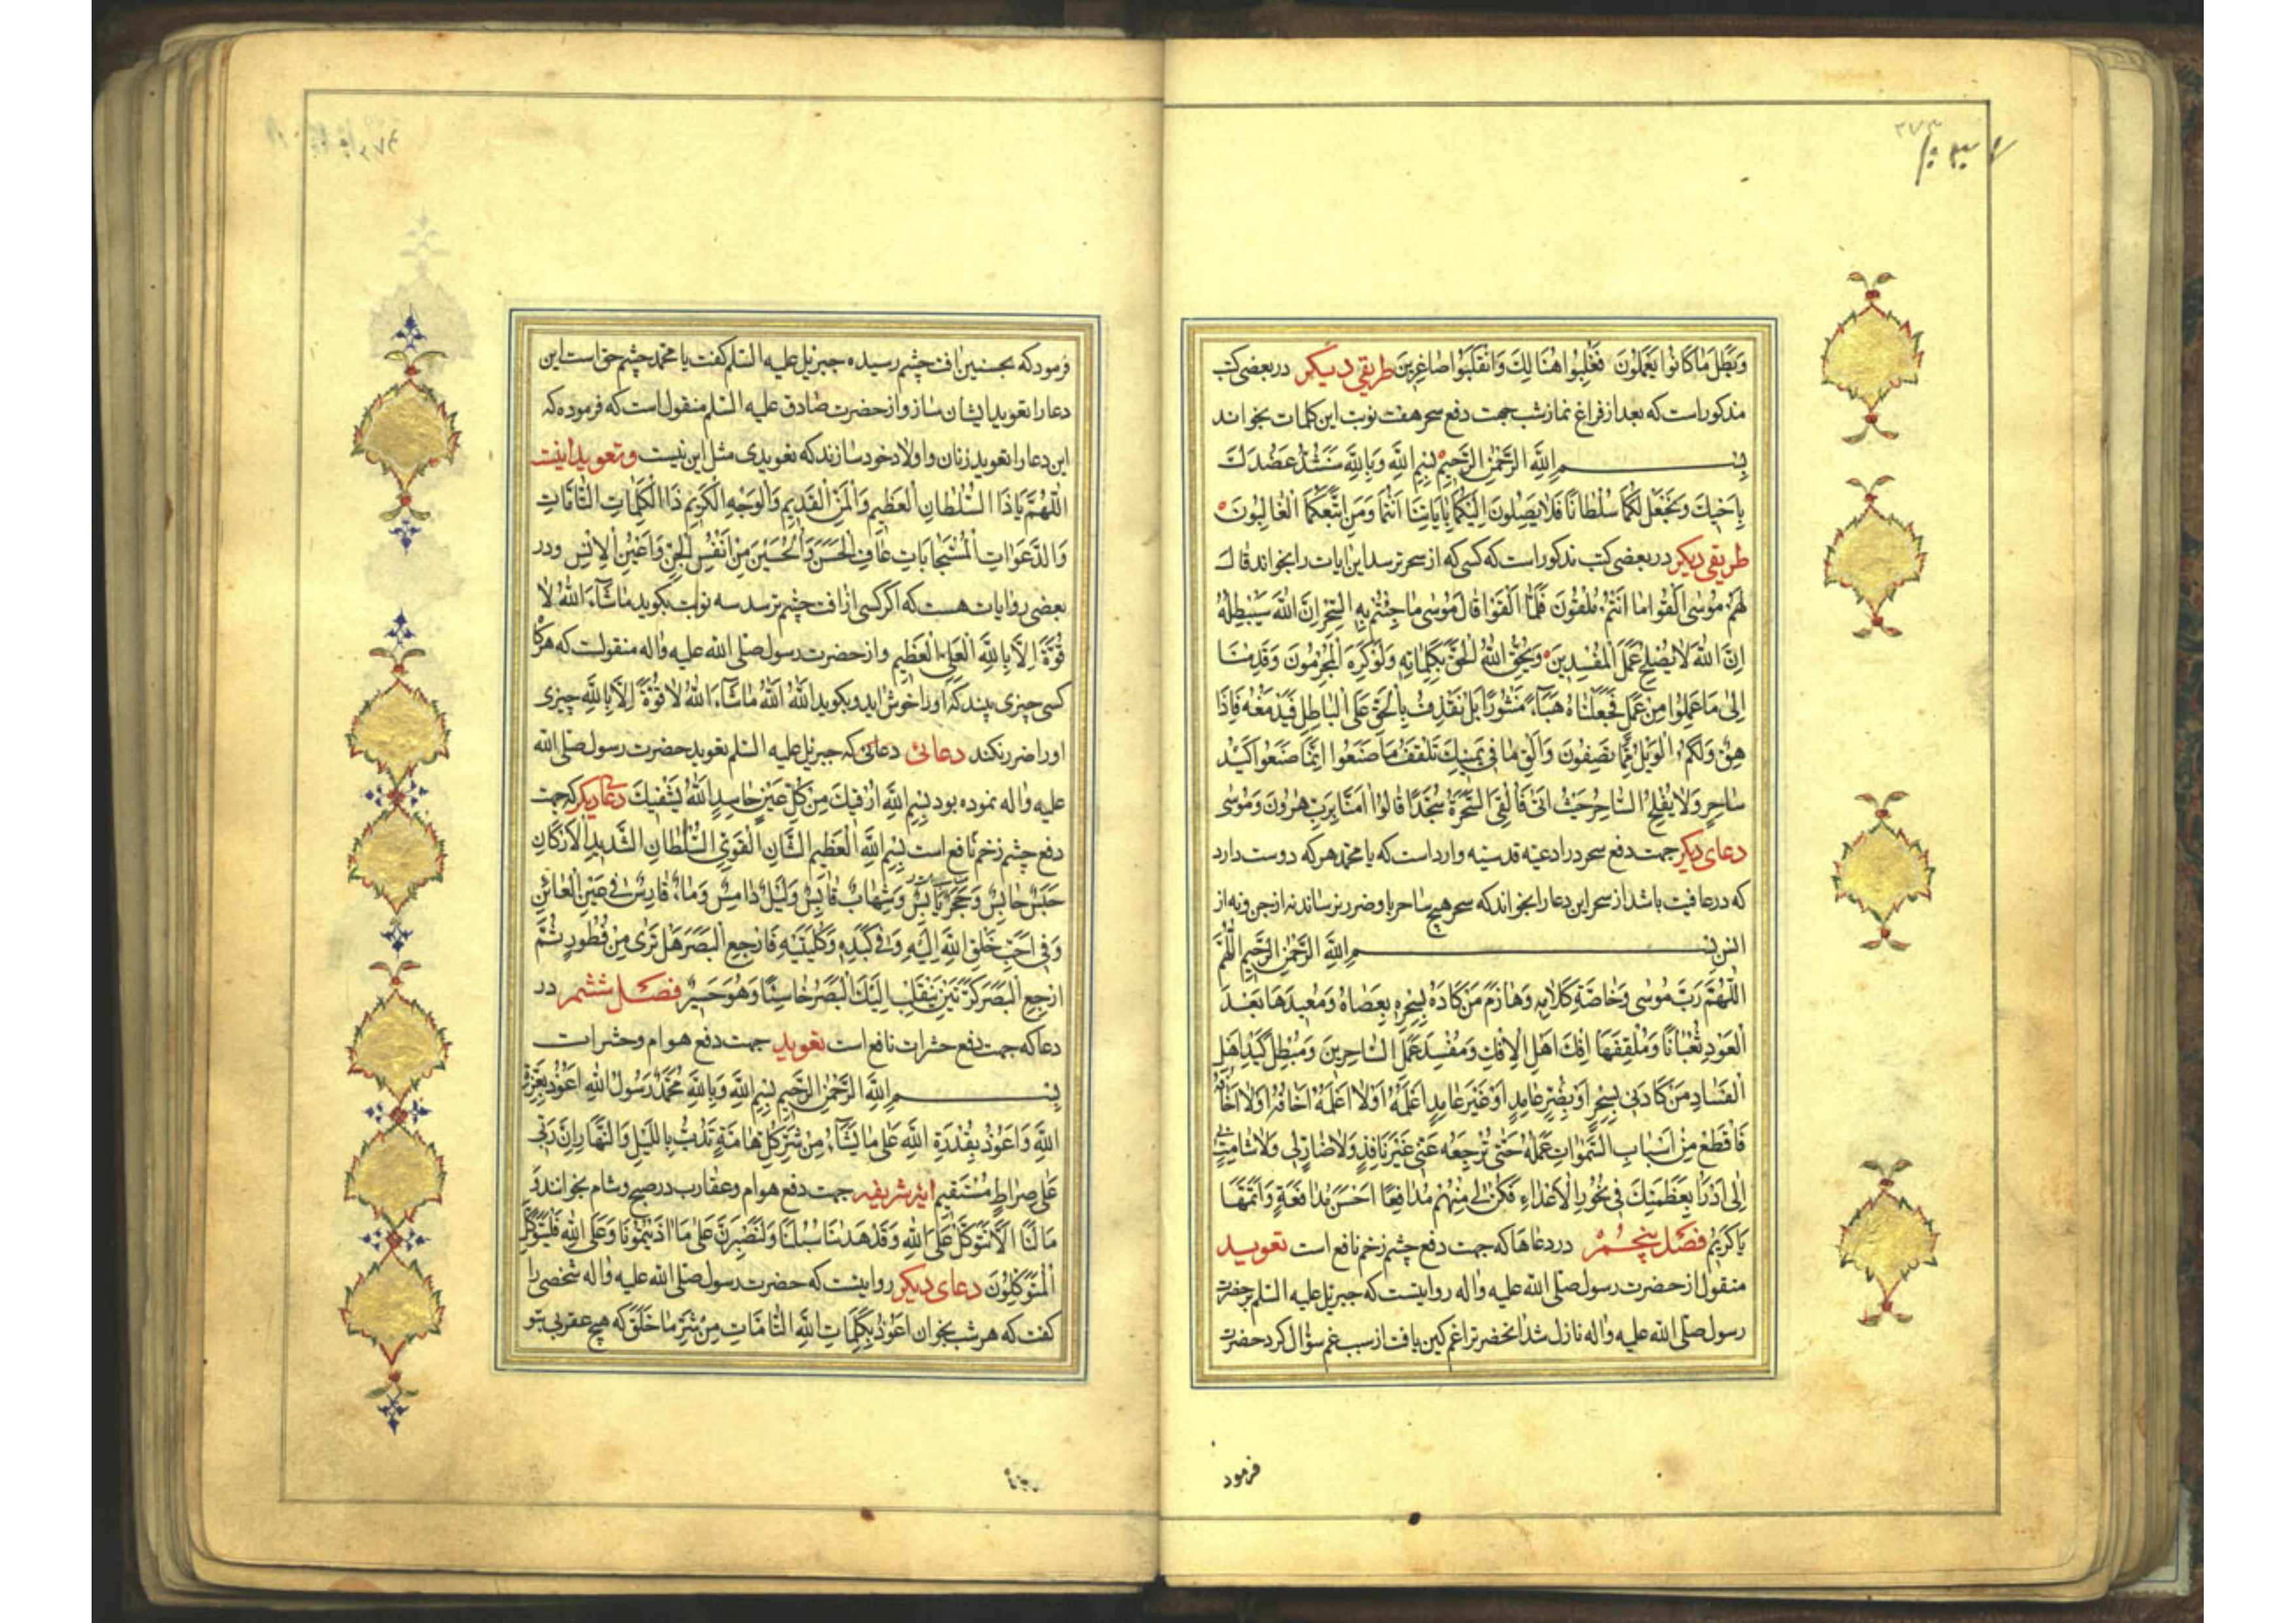 ۳۷۳
وَبَطَلَ مَا كَانُوا يَعْمَلُونَ فَغُلِبُوا هُنَالِكَ وَانْقَلَبُوا صَاغِرِينَ طریقی دیگر در بعضی کتب
مذکور است که بعد از فراغ نماز شب جهت دفع سحر هفت نوبت این کلمات بخواند
بِسْمِ اللَّهِ الرَّحْمٰنِ الرَّحِيمِ بِسْمِ اللَّهِ وَبِاللَّهِ سَنَشُدُّ عَضُدَكَ
بِأَخِيكَ وَنَجْعَلُ لَكُمَا سُلْطَانًا فَلَا يَصِلُونَ إِلَيْكُمَا بِآيَاتِنَا أَنْتُمَا وَمَنِ اتَّبَعَكُمَا الْغَالِبُونَ
طریقی دیگر در بعضی کتب مذکور است که کسی که از سحر ترسد این ایات را بخواند قَالَ
لَهُمْ مُوسَى أَلْقُوا مَا أَنْتُمْ مُلْقُونَ فَلَمَّا أَلْقَوْا قَالَ مُوسَى مَا جِئْتُمْ بِهِ السِّحْرُ إِنَّ اللَّهَ سَيُبْطِلُهُ
إِنَّ اللَّهَ لَا يُصْلِحُ عَمَلَ الْمُفْسِدِينَ وَيُحِقُّ اللَّهُ الْحَقَّ بِكَلِمَاتِهِ وَلَوْ كَرِهَ الْمُجْرِمُونَ وَقَدِمْنَا
إِلَى مَا عَمِلُوا مِنْ عَمَلٍ فَجَعَلْنَاهُ هَبَاءً مَنْثُورًا بَلْ نَقْذِفُ بِالْحَقِّ عَلَى الْبَاطِلِ فَيَدْمَغُهُ فَإِذَا
هِيَ وَلَكُمُ الْوَيْلُ مِمَّا تَصِفُونَ وَأَلْقِ مَا فِي يَمِينِكَ تَلْقَفْ مَا صَنَعُوا إِنَّمَا صَنَعُوا كَيْدُ
سَاحِرٍ وَلَا يُفْلِحُ السَّاحِرُ حَيْثُ أَتَى فَأُلْقِيَ السَّحَرَةُ سُجَّدًا قَالُوا آمَنَّا بِرَبِّ هٰرُونَ وَمُوسَى
دعای دیگر جهت دفع سحر در ادعیه قدسیه وارد است که یا محمد هر که دوست دارد
که در عافیت باشد از سحر این دعا را بخواند که سحر هیچ ساحر باو ضرر نرساند نه از جن و نه از
انس بِسْمِ اللَّهِ الرَّحْمٰنِ الرَّحِيمِ اللَّهُمَّ
اللَّهُمَّ رَبَّ مُوسَى وَخَاصَّهُ بِكَلَامِهِ وَهَازِمَ مَنْ كَادَهُ بِسِحْرِهِ بِعَصَاهُ وَمُعِيدَهَا بَعْدَ
الْعَوْدِ ثُعْبَانًا وَمُلْقِفَهَا إِفْكَ أَهْلِ الْإِفْكِ وَمُفْسِدَ عَمَلِ السَّاحِرِينَ وَمُبْطِلَ كَيْدِ أَهْلِ
الْفَسَادِ مَنْ كَادَنِي بِسِحْرٍ أَوْ بِضُرٍّ عَامِدٍ أَوْ غَيْرِ عَامِدٍ أَعْلَمُهُ أَوْ لَا أَعْلَمُهُ أَخَافُهُ أَوْ لَا أَخَافُهُ
فَاقْطَعْ مِنْ أَسْبَابِ السَّمٰوَاتِ عَمَلَهُ حَتَّى تُرْجِعَهُ عَنِّي غَيْرَ نَافِذٍ وَلَا ضَارٍّ لِي وَلَا شَامِتٍ بِي
إِنِّي أَدْرَأُ بِعَظَمَتِكَ فِي نُحُورِ الْأَعْدَاءِ فَكُنْ لِي مِنْهُمْ مُدَافِعًا أَحْسَنَ مُدَافَعَةٍ وَأَتَمَّهَا
يَا كَرِيمُ فصل پنجم در دعاها که جهت دفع چشم زخم نافع است تعوید
منقول از حضرت رسول صلی الله علیه واله روایتست که جبرئیل علیه السلم بر حضرت
رسول صلی الله علیه واله نازل شد انحضرت را غم کین یافت از سبب غم سؤال کرد حضرت
فرمود
فرمود که بحسنین افت چشم رسیده جبرئیل علیه السلم گفت یا محمد چشم حق است این
دعا را تعوید ایشان ساز و از حضرت صادق علیه السلم منقول است که فرموده که
این دعا را تعوید زنان و اولاد خود سازند که تعویدی مثل این نیست و تعوید اینست
اللَّهُمَّ يَا ذَا السُّلْطَانِ الْعَظِيمِ وَالْمَنِّ الْقَدِيمِ وَالْوَجْهِ الْكَرِيمِ ذَا الْكَلِمَاتِ التَّامَّاتِ
وَالدَّعَوَاتِ الْمُسْتَجَابَاتِ عَافِ الْحَسَنَ وَالْحُسَيْنَ مِنْ أَنْفُسِ الْجِنِّ وَأَعْيُنِ الْإِنْسِ و در
بعضی روایات هست که اگر کسی از افت چشم ترسد سه نوبت بگوید مَا شَاءَ اللَّهُ لَا
قُوَّةَ إِلَّا بِاللَّهِ الْعَلِيِّ الْعَظِيمِ و از حضرت رسول صلی الله علیه واله منقولست که هرگا
کسی چیزی بیند که او را خوش اید و بگوید اللَّهُ اللَّهُ مَا شَاءَ اللَّهُ لَا قُوَّةَ إِلَّا بِاللَّهِ چیزی
او را ضرر نکند دعائی دعائی که جبرئیل علیه السلم تعوید حضرت رسول صلی الله
علیه واله نموده بود بِسْمِ اللَّهِ أَرْقِيكَ مِنْ كُلِّ عَيْنِ حَاسِدٍ اللَّهُ يَشْفِيكَ دعا دیگر که جهت
دفع چشم زخم نافع است بِسْمِ اللَّهِ الْعَظِيمِ الشَّانِ الْقَوِيِّ السُّلْطَانِ الشَّدِيدِ الْأَرْكَانِ
حَبْسٌ حَابِسٌ وَحَجَرٌ يَابِسٌ وَشِهَابٌ قَابِسٌ وَلَيْلٌ دَامِسٌ وَمَاءٌ قَارِسٌ فِي عَيْنِ الْعَائِنِ
وَفِي أَحَبِّ خَلْقِ اللَّهِ إِلَيْهِ وَفِي كَبِدِهِ وَكُلْيَتَيْهِ فَارْجِعِ الْبَصَرَ هَلْ تَرَى مِنْ فُطُورٍ ثُمَّ
ارْجِعِ الْبَصَرَ كَرَّتَيْنِ يَنْقَلِبْ إِلَيْكَ الْبَصَرُ خَاسِئًا وَهُوَ حَسِيرٌ فصل ششم در
دعا که جهت دفع حشرات نافع است تعوید جهت دفع هوام و حشرات
بِسْمِ اللَّهِ الرَّحْمٰنِ الرَّحِيمِ بِسْمِ اللَّهِ وَبِاللَّهِ مُحَمَّدٌ رَسُولُ اللَّهِ أَعُوذُ بِعِزَّةِ
اللَّهِ وَأَعُوذُ بِقُدْرَةِ اللَّهِ عَلَى مَا يَشَاءُ مِنْ شَرِّ كُلِّ هَامَّةٍ تَدُبُّ بِاللَّيْلِ وَالنَّهَارِ إِنَّ رَبِّي
عَلَى صِرَاطٍ مُسْتَقِيمٍ ایه شریفه جهت دفع هوام و عقارب در صبح و شام بخواند وَ
مَا لَنَا أَلَّا نَتَوَكَّلَ عَلَى اللَّهِ وَقَدْ هَدٰىنَا سُبُلَنَا وَلَنَصْبِرَنَّ عَلَى مَا آذَيْتُمُونَا وَعَلَى اللَّهِ فَلْيَتَوَكَّلِ
الْمُتَوَكِّلُونَ دعای دیگر روایتست که حضرت رسول صلی الله علیه واله شخصی را
گفت که هر شب بخوان أَعُوذُ بِكَلِمَاتِ اللَّهِ التَّامَّاتِ مِنْ شَرِّ مَا خَلَقَ که هیچ عقربی بتو